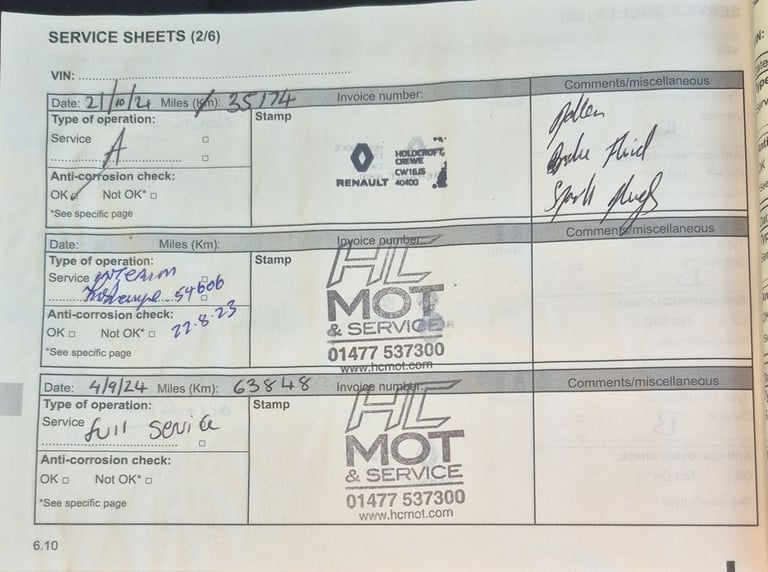 SERVICE SHEETS (2/6)
VIN:
Date: 21/10/21 Miles (Km): 35174 Invoice number: Comments/miscellaneous
Type of operation: Stamp
Service A
Anti-corrosion check:
OK Not OK*
*See specific page
RENAULT
HOLDCROFT,
CREWE
CW16JS
40400
Pollen
Brake Fluid
Spark plugs
Date: Miles (Km): Invoice number: Comments/miscellaneous
Type of operation: Stamp
Service interim
54606
Anti-corrosion check:
OK Not OK* 22.8.23
*See specific page
HC
MOT
& SERVICE
01477 537300
www.hcmot.com
Date: 4/9/24 Miles (Km): 63848 Invoice number: Comments/miscellaneous
Type of operation: Stamp
Service full service
Anti-corrosion check:
OK Not OK*
*See specific page
HC
MOT
& SERVICE
01477 537300
www.hcmot.com
6.10